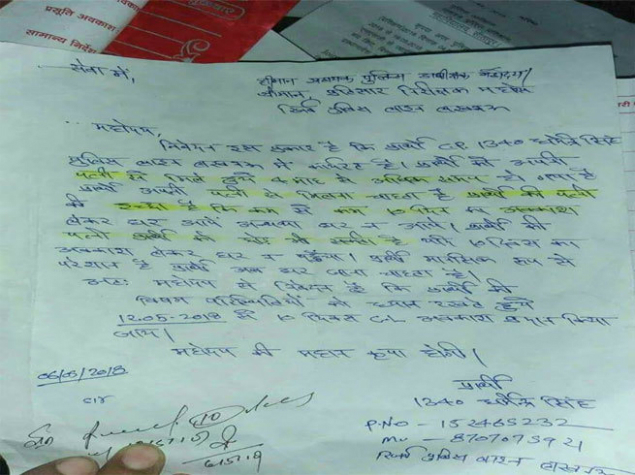 प्रसूति अवकाश
सामान्य निर्देश
सेवा में,
श्रीमान
श्रीमान, प्रतिसार निरीक्षक महोदय
रिजर्व पुलिस लाइन लखनऊ
महोदय,
निवेदन इस प्रकार है कि प्रार्थी CP 1340 धर्मेन्द्र सिंह
पुलिस लाइन लखनऊ में है। प्रार्थी को अपनी
पत्नी से मिले हुये माह से अधिक समय हो गया है
प्रार्थी अपनी पत्नी से मिलना चाहता है प्रार्थी की पत्नी
का कहना है कि कम से कम 10 दिवस का अवकाश
लेकर घर आये अन्यथा घर न आये। प्रार्थी की
पत्नी प्रार्थी को छोड़ भी सकती है यदि 10 दिवस का
अवकाश लेकर घर न पहुँचा। प्रार्थी मानसिक रूप से
परेशान है प्रार्थी अब घर जाना चाहता है।
अतः महोदय से निवेदन है कि प्रार्थी की
विषम परिस्थितियों को ध्यान रखते हुये
12.05-2018 से 10 दिवस C.L अवकाश प्रदान किया
जाय।
महोदय की महान कृपा होगी।
06/05/2018
प्रार्थी
1340 धर्मेन्द्र सिंह
P.No - 152465232
Mo - 8707073921
रिजर्व पुलिस लाइन लखनऊ